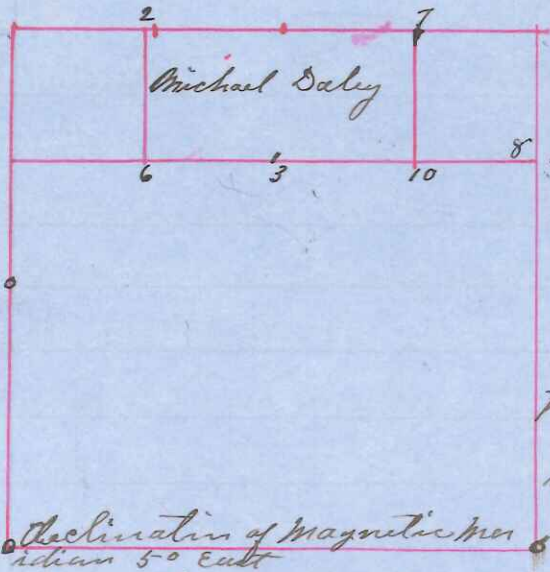 2 7
Michael Daley
8
6 3 10
Declination of Magnetic Mer
idian 5° East